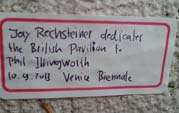 Jay Rechsteiner dedicates
the British Pavilion to
Phil Illingworth
10.9.2013 Venice Biennale